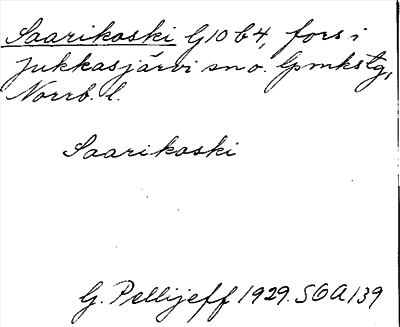 Saarikoski G10 b4, fors i
Jukkasjärvi sn o. Lpmkstg,
Norrb. l.
Saarikoski
G. Pellijeff 1929. SOA 139